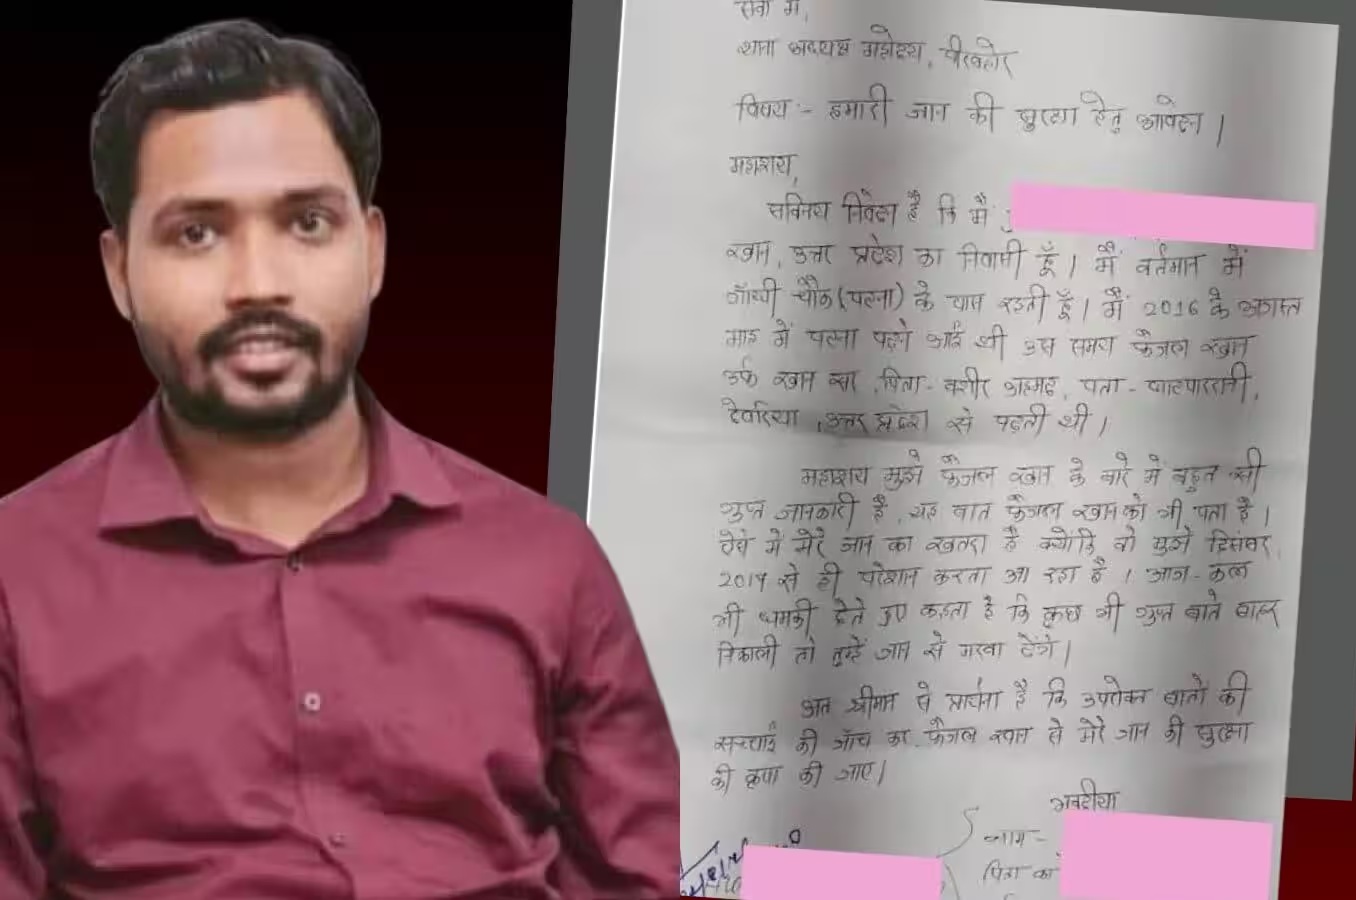 सेवा में,
थाना अध्यक्ष महोदय, पीरबहोर
विषय :- हमारी जान की सुरक्षा हेतु आवेदन।
महाशय,
सविनय निवेदन है कि मैं
खान, उत्तर प्रदेश का निवासी हूँ। मैं वर्तमान में
गाँधी चौक (पटना) के पास रहती हूँ। मैं 2016 के अगस्त
माह में पटना पढ़ने आई थी उस समय फैजल खान
उर्फ खान सर, पिता- बशीर अहमद, पता - भाटपाररानी,
देवरिया, उत्तर प्रदेश से पढ़ती थी।
महाशय मुझे फैजल खान के बारे में बहुत सी
गुप्त जानकारी है, यह बात फैजल खान को भी पता है।
ऐसे में मेरे जान का खतरा है क्योंकि वो मुझे दिसंबर,
2019 से ही परेशान करता आ रहा है। आज-कल
भी धमकी देते हुए कहता है कि कुछ भी गुप्त बाते बाहर
निकाली तो तुम्हें जान से मरवा देंगे।
अतः श्रीमान से प्रार्थना है कि उपरोक्त बातों की
सच्चाई की जाँच कर फैजल खान से मेरे जान की सुरक्षा
की कृपा की जाए।
भवदीया
नाम-
पिता का